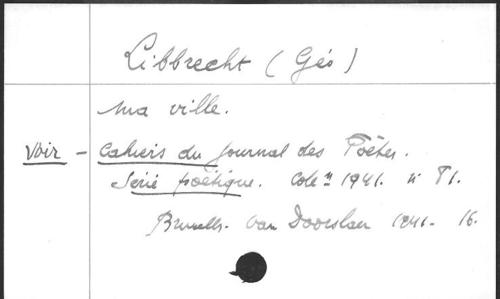 Libbrecht (Géo)
Ma ville.
Voir - Cahiers du Journal des Poètes.
Série poétique. Coll. 1941. n° 81.
Bruxelles. Van Doorslaer 1941. 16.